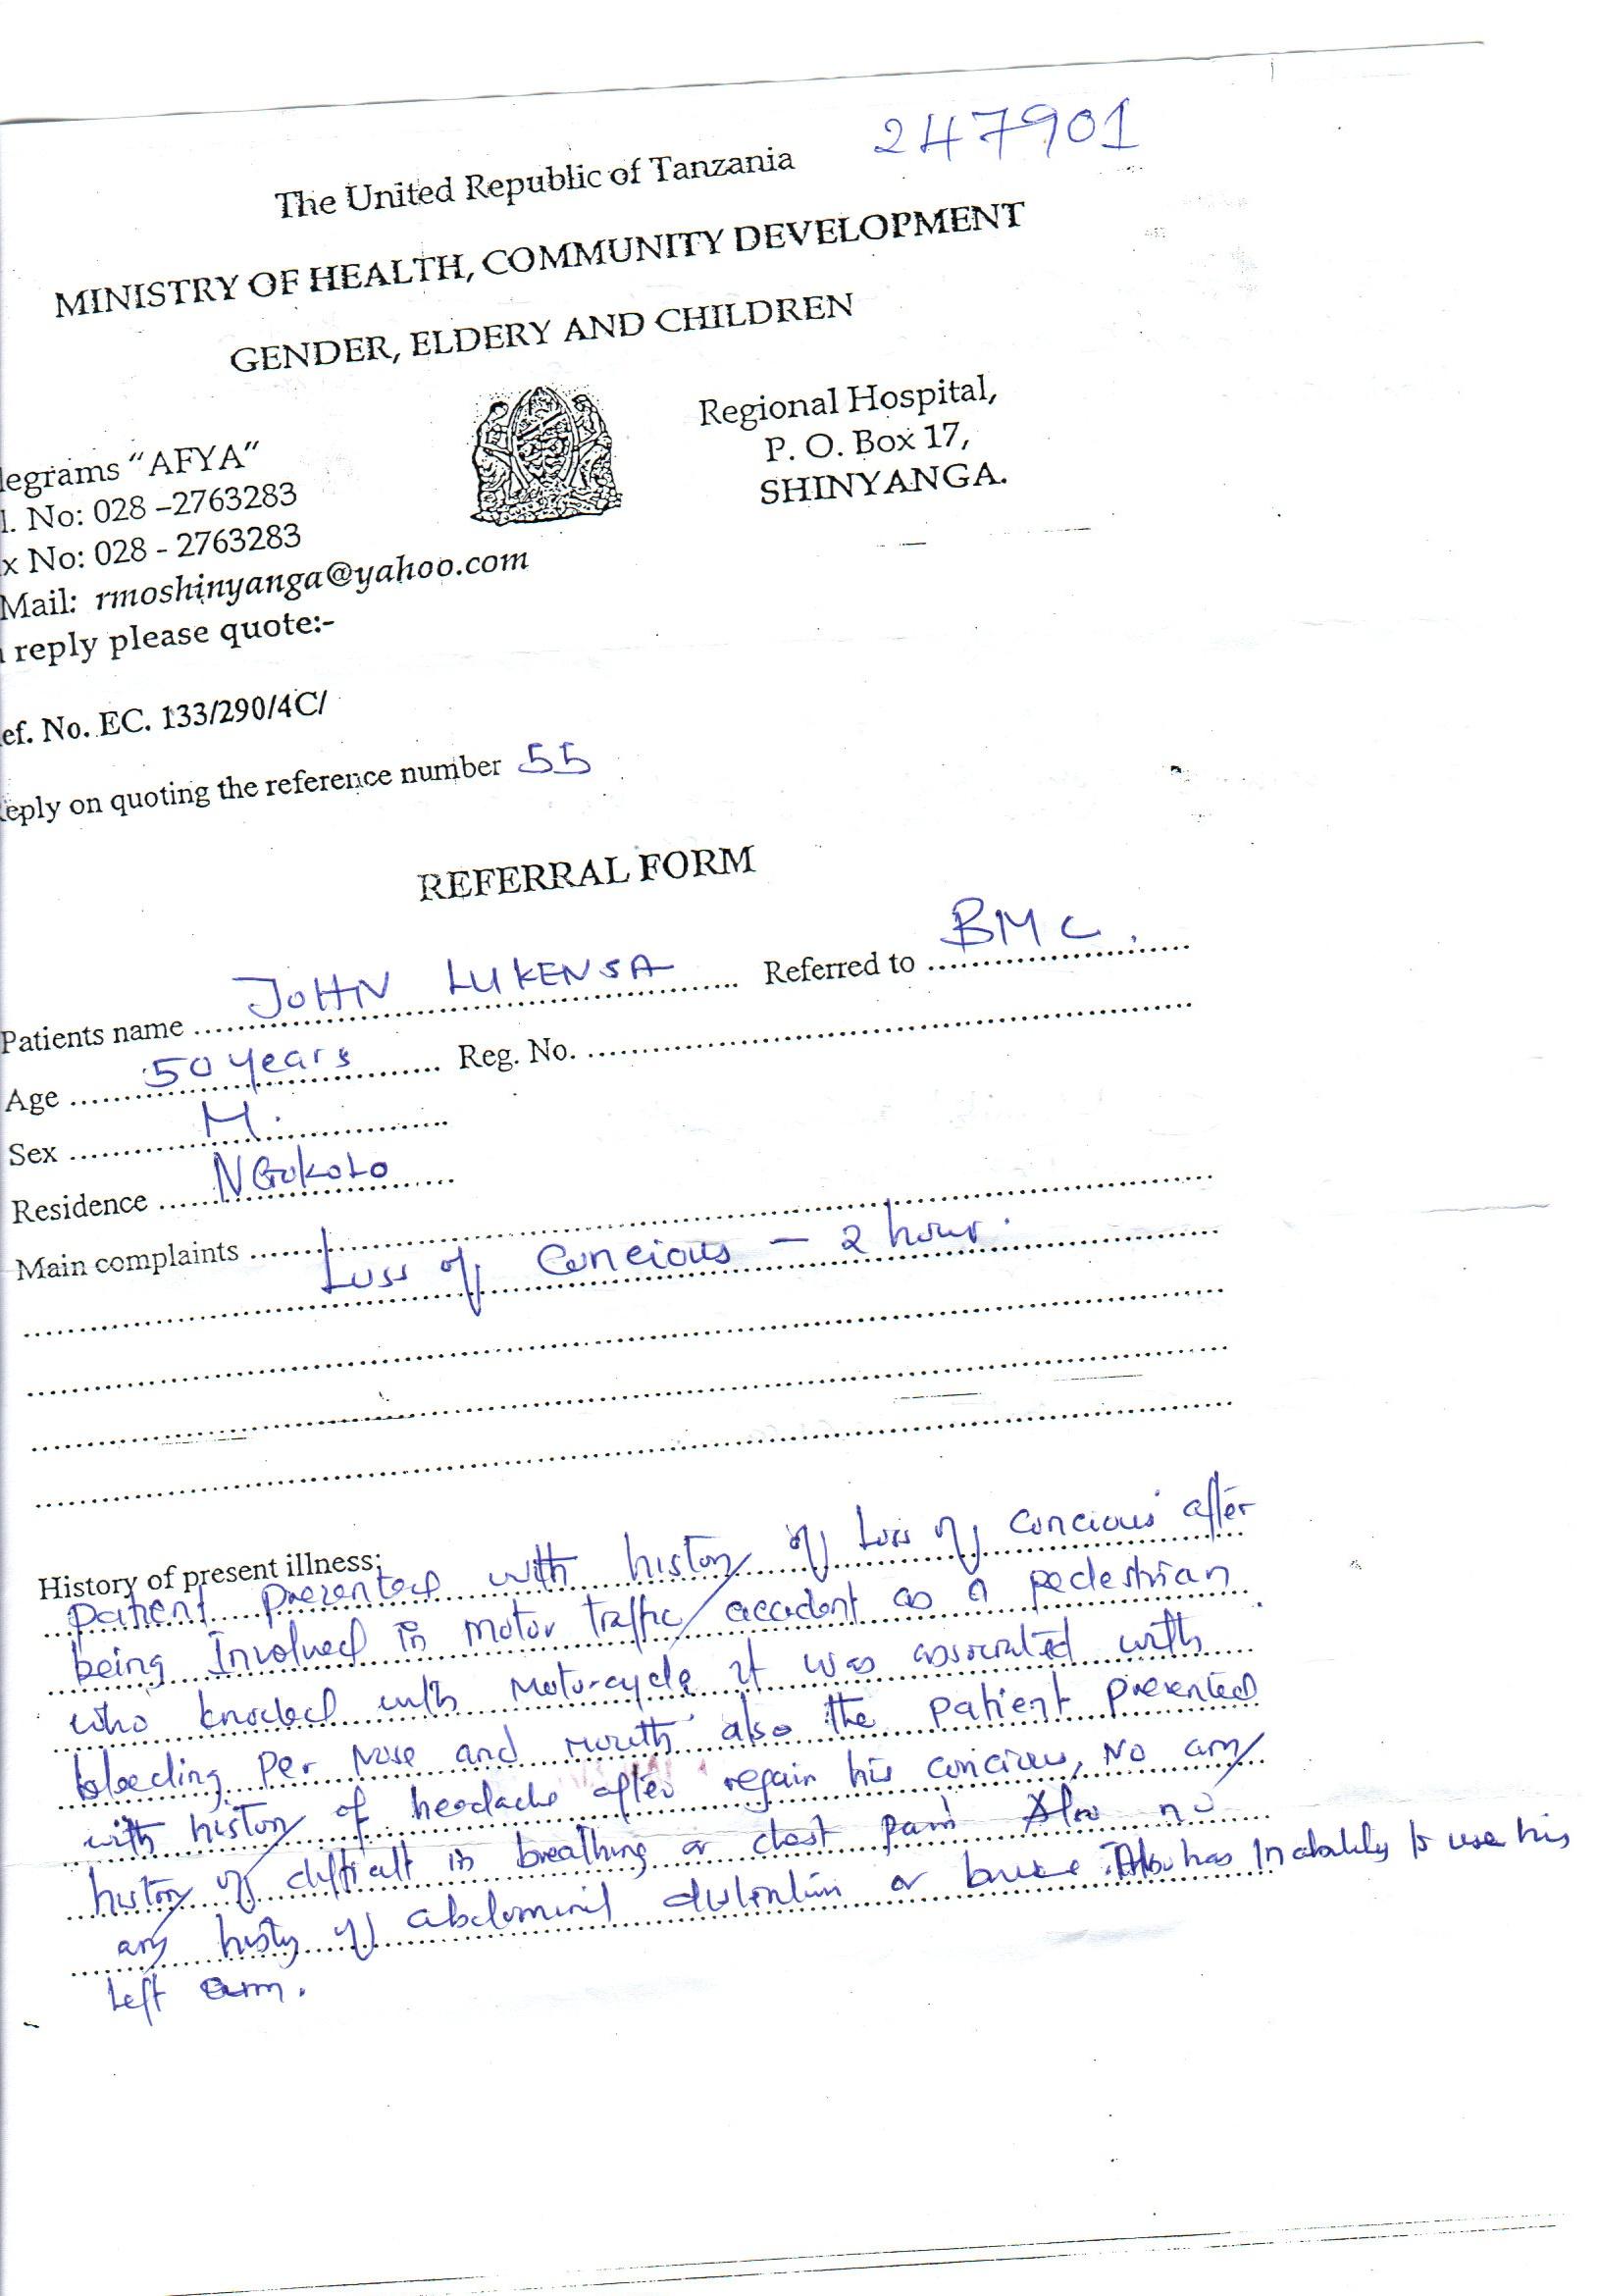 247901
The United Republic of Tanzania
MINISTRY OF HEALTH, COMMUNITY DEVELOPMENT
GENDER, ELDERY AND CHILDREN
legrams "AFYA"
l. No: 028 –2763283
x No: 028 - 2763283
Mail: rmoshinyanga@yahoo.com
reply please quote:-
Regional Hospital,
P. O. Box 17,
SHINYANGA.
ef. No. EC. 133/290/4C/
eply on quoting the reference number 55
REFERRAL FORM
Patients name JOHN LUKENSA Referred to BMC.
Age 50 years Reg. No.
Sex M.
Residence NGOKOLO
Main complaints
Loss of Concious – 2 hour.
History of present illness:
patient presented with history of Loss of concious after
being Involved in motor traffic accident as a pedestrian
who knocked with Motorcycle it was associated with
bleeding per Nose and mouth also the patient presented
with history of headache after regain his concious, No any
history of difficult in breathing or chest pain Also no
any histy of abdominal distention or Also has Inability to use his
Left arm.